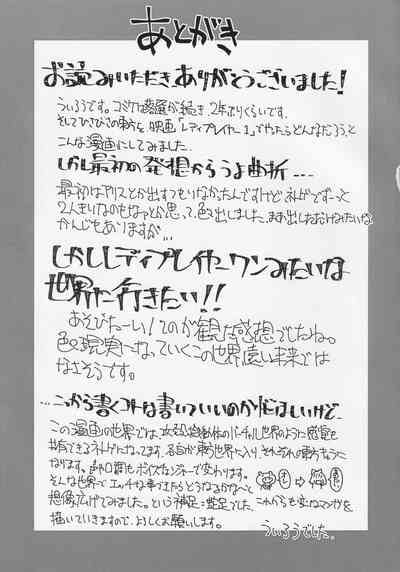 あとがき
お読みいただき、ありがとうございました!
ういろうです。コミケは落選が続き、2年ぶりくらいです。
そしてひさびさの東方を、映画「レディプレイヤー1」でやったらどんなだろうと
こんな漫画にしてみました。
しかし最初の発想からうよ曲折...
最初はアリスとか出すつもりなかったんですけど、ネトゲでずーっと
2人きりなのもなっとか思って、色々出しました。まあ出しただけみたいな
かんじもありますが...
しかしレディプレイヤーワンみたいな
世界に行きたい!!
あそびたーい!てのが観た感想でしたね。
色々現実へなっていくこの世界、遠い未来では
なさそうです。
...ここから書くコトは書いていいのか忙はしいけど...
この漫画の世界では、バーチャル世界のように感覚を
共有できるネトゲになってます。各自が東方世界に入り、それぞれの東方キャラに
なります。声や口調もボイスチェンジャーで変わります。
そんな世界で、エッチな事できたらどうなるかな〜と
想像広げてみました。という補足・蛇足でした。これからも変なマンガを
描いていきますので、よろしくお願いします。
ういろうでした。